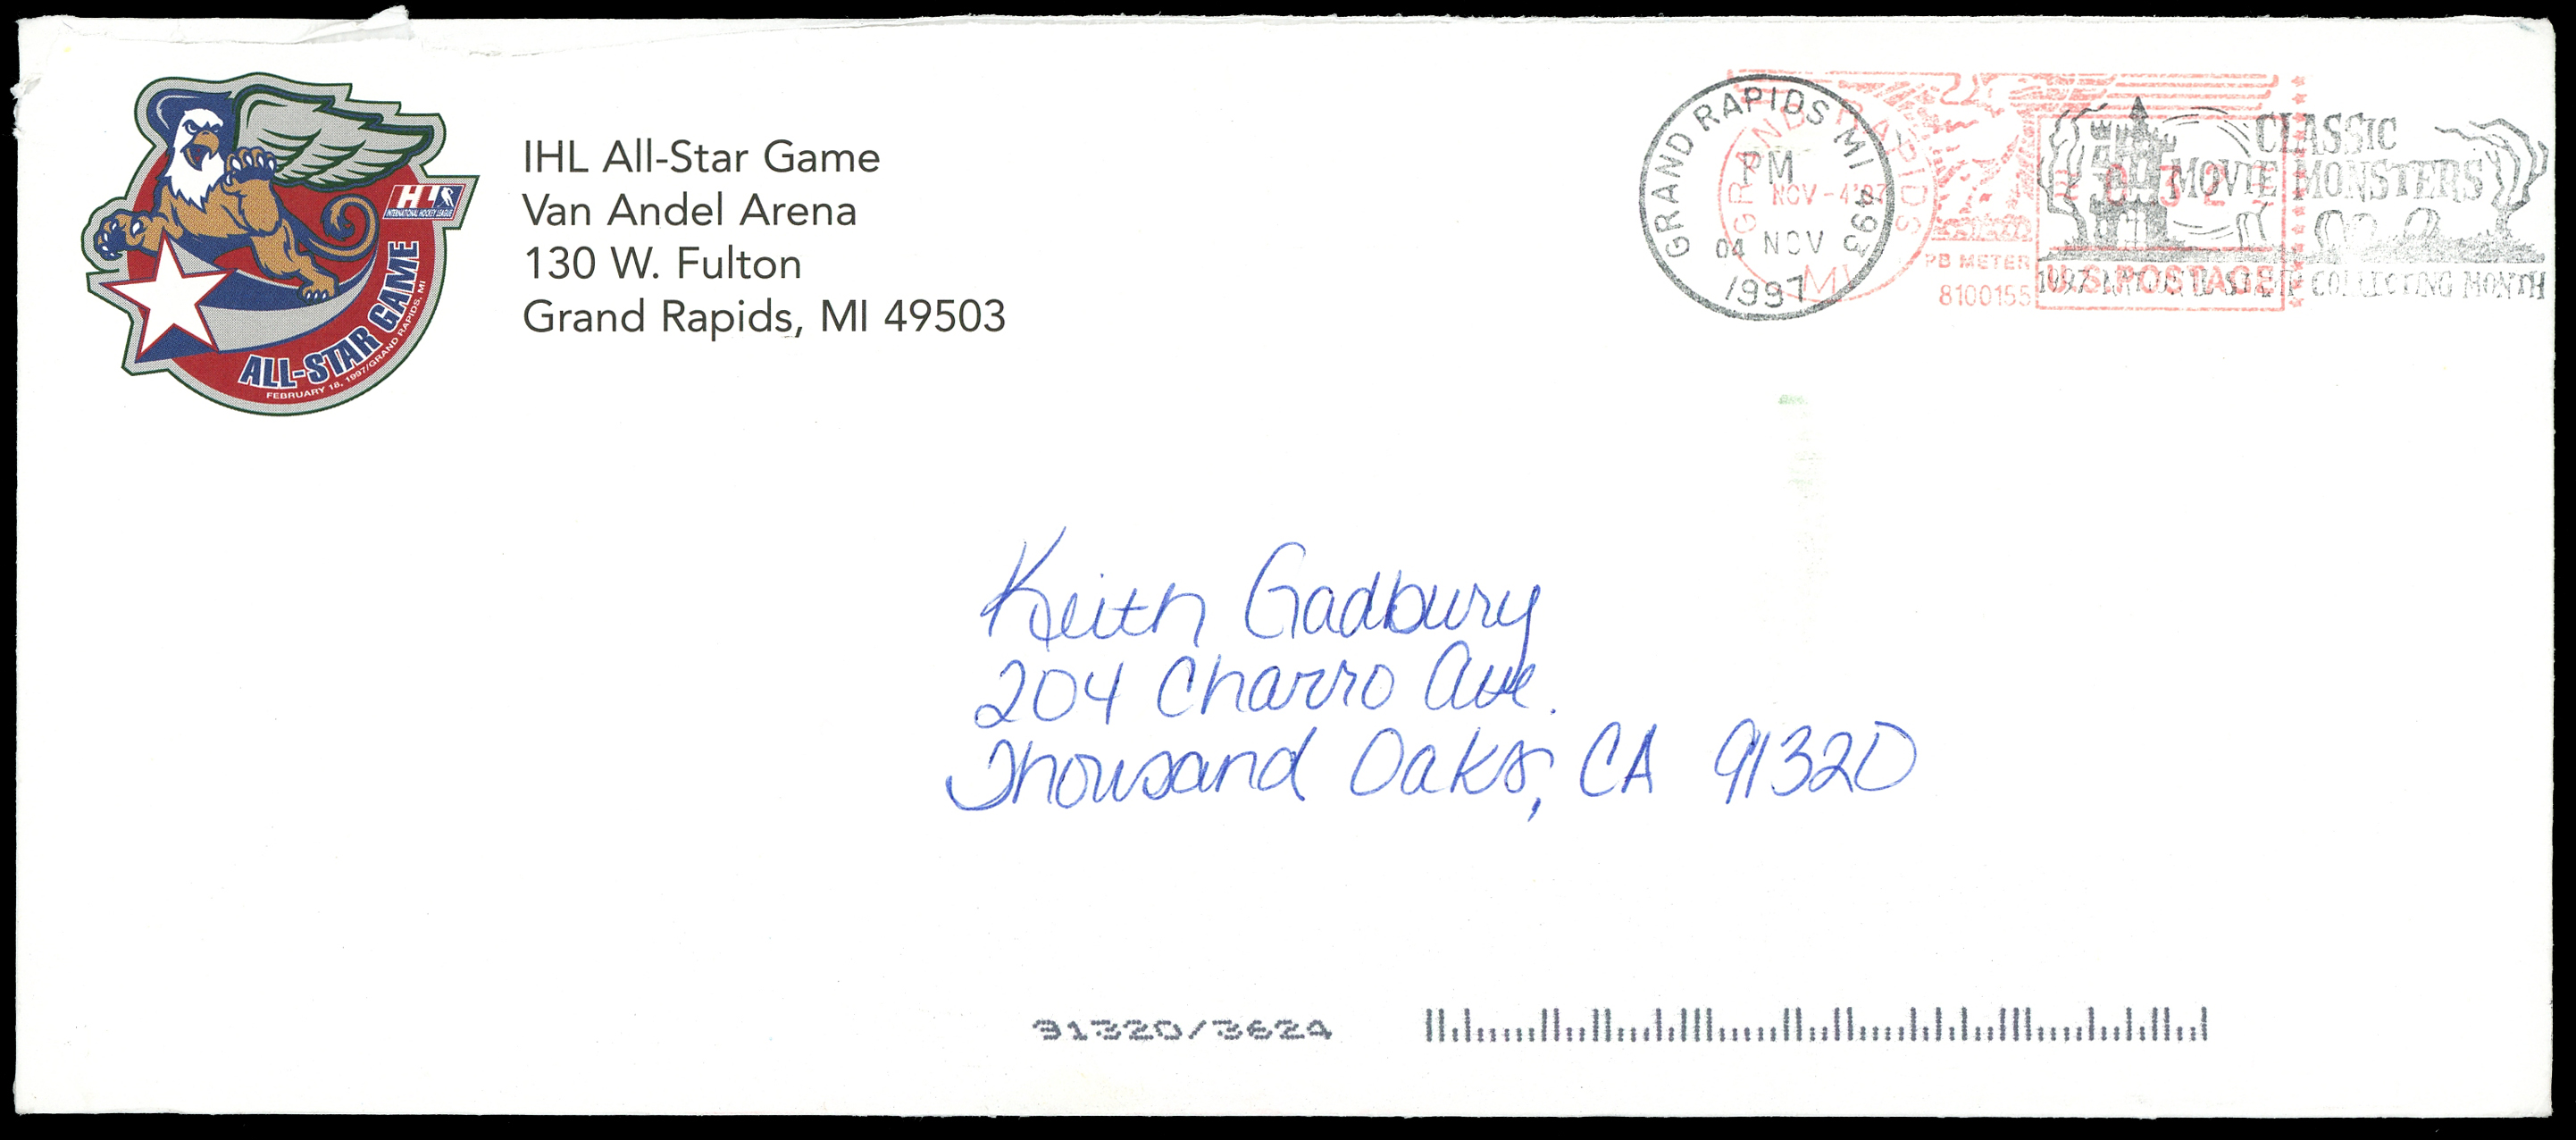 IHL
INTERNATIONAL HOCKEY LEAGUE
ALL-STAR GAME
FEBRUARY 18, 1997/GRAND RAPIDS, MI
IHL All-Star Game
Van Andel Arena
130 W. Fulton
Grand Rapids, MI 49503
GRAND RAPIDS MI 493
PM
04 NOV
1997
GRAND RAPIDS
NOV-4'97
MI
PB METER
8100155
0 32
U.S. POSTAGE
CLASSIC
MOVIE MONSTERS
1997 STAMP COLLECTING MONTH
Keith Gadbury
204 Charro Ave.
Thousand Oaks, CA 91320
91320/3624